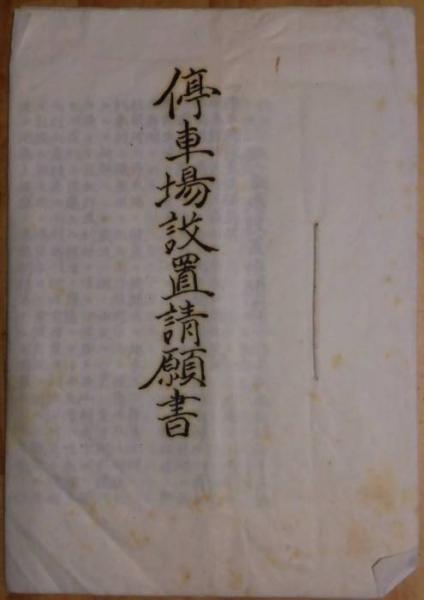 停車場設置請願書